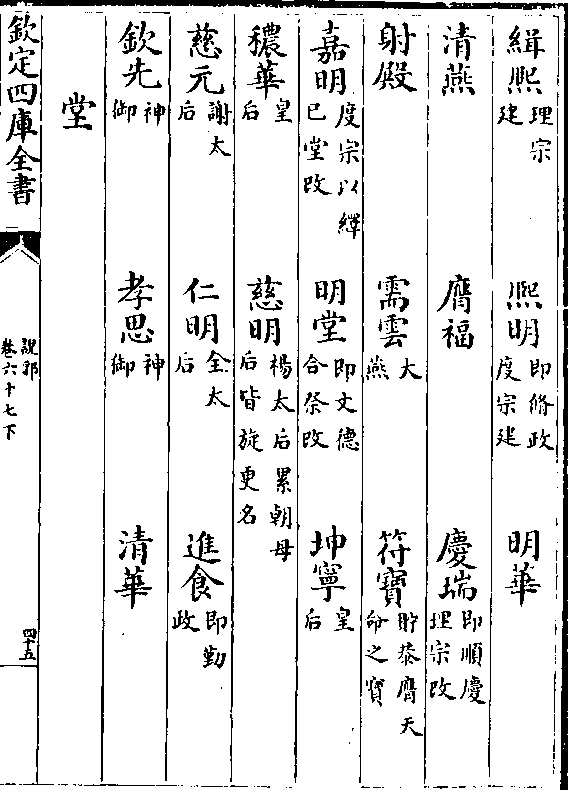 緝熙理宗建 熙明即脩政度宗建 明華
清燕 膺福 慶瑞即順慶理宗改
射殿 需雲大燕 符寶貯恭膺天命之寶
嘉明度宗以繹已堂改 明堂即文德合祭改 坤寧皇后
穠華皇后 慈明楊太后累朝母后皆旋更名
慈元謝太后 仁明全太后 進食即勤政
欽先神御 孝思神御 清華
堂
欽定四庫全書
說郛
卷六十七下
四十五